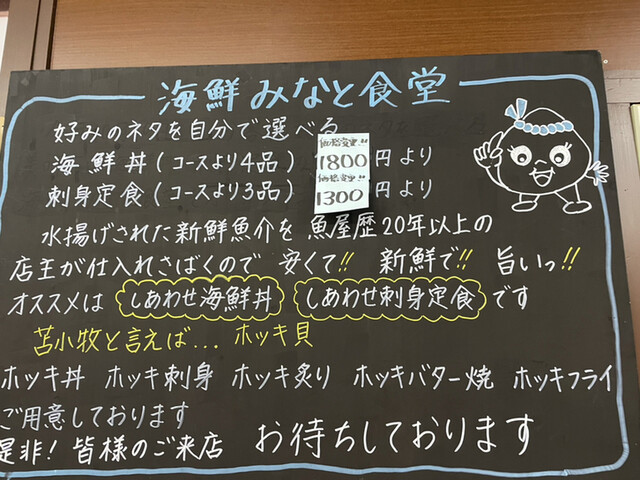 海鮮みなと食堂
好みのネタを自分で選べる
海鮮丼(コースより4品) 価格変更!! 1800円より
刺身定食(コースより3品) 価格変更!! 1300円より
水揚げされた新鮮魚介を 魚屋歴20年以上の
店主が仕入れさばくので 安くて!! 新鮮で!! 旨いっ!!
オススメは しあわせ海鮮丼 しあわせ刺身定食 です
苫小牧と言えば... ホッキ貝
ホッキ丼 ホッキ刺身 ホッキ炙り ホッキバター焼 ホッキフライ
ご用意しております
是非! 皆様のご来店 お待ちしております